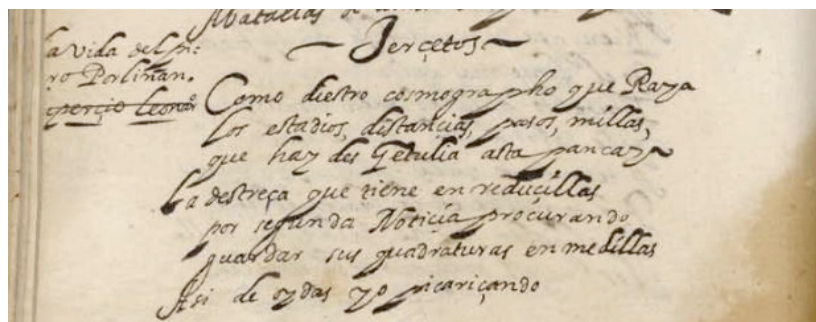 Matracas de
Terçetos
la Vida del pi:
ro Porliñan.
Como diestro cosmographo que Raya
los estadios, distancias, pasos, millas,
que hay des Getulia asta pancaya
La destreça que tiene en reduçillas
por segunda Noticia procurando
guardar sus quadraturas en medillas
Asi de oydas yo picariçando